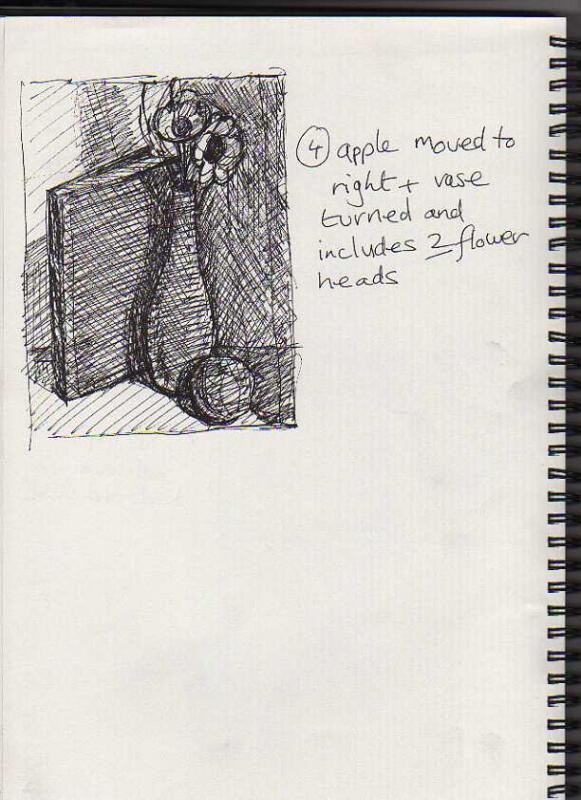 ④ apple moved to
right + vase
turned and
includes 2 flower
heads